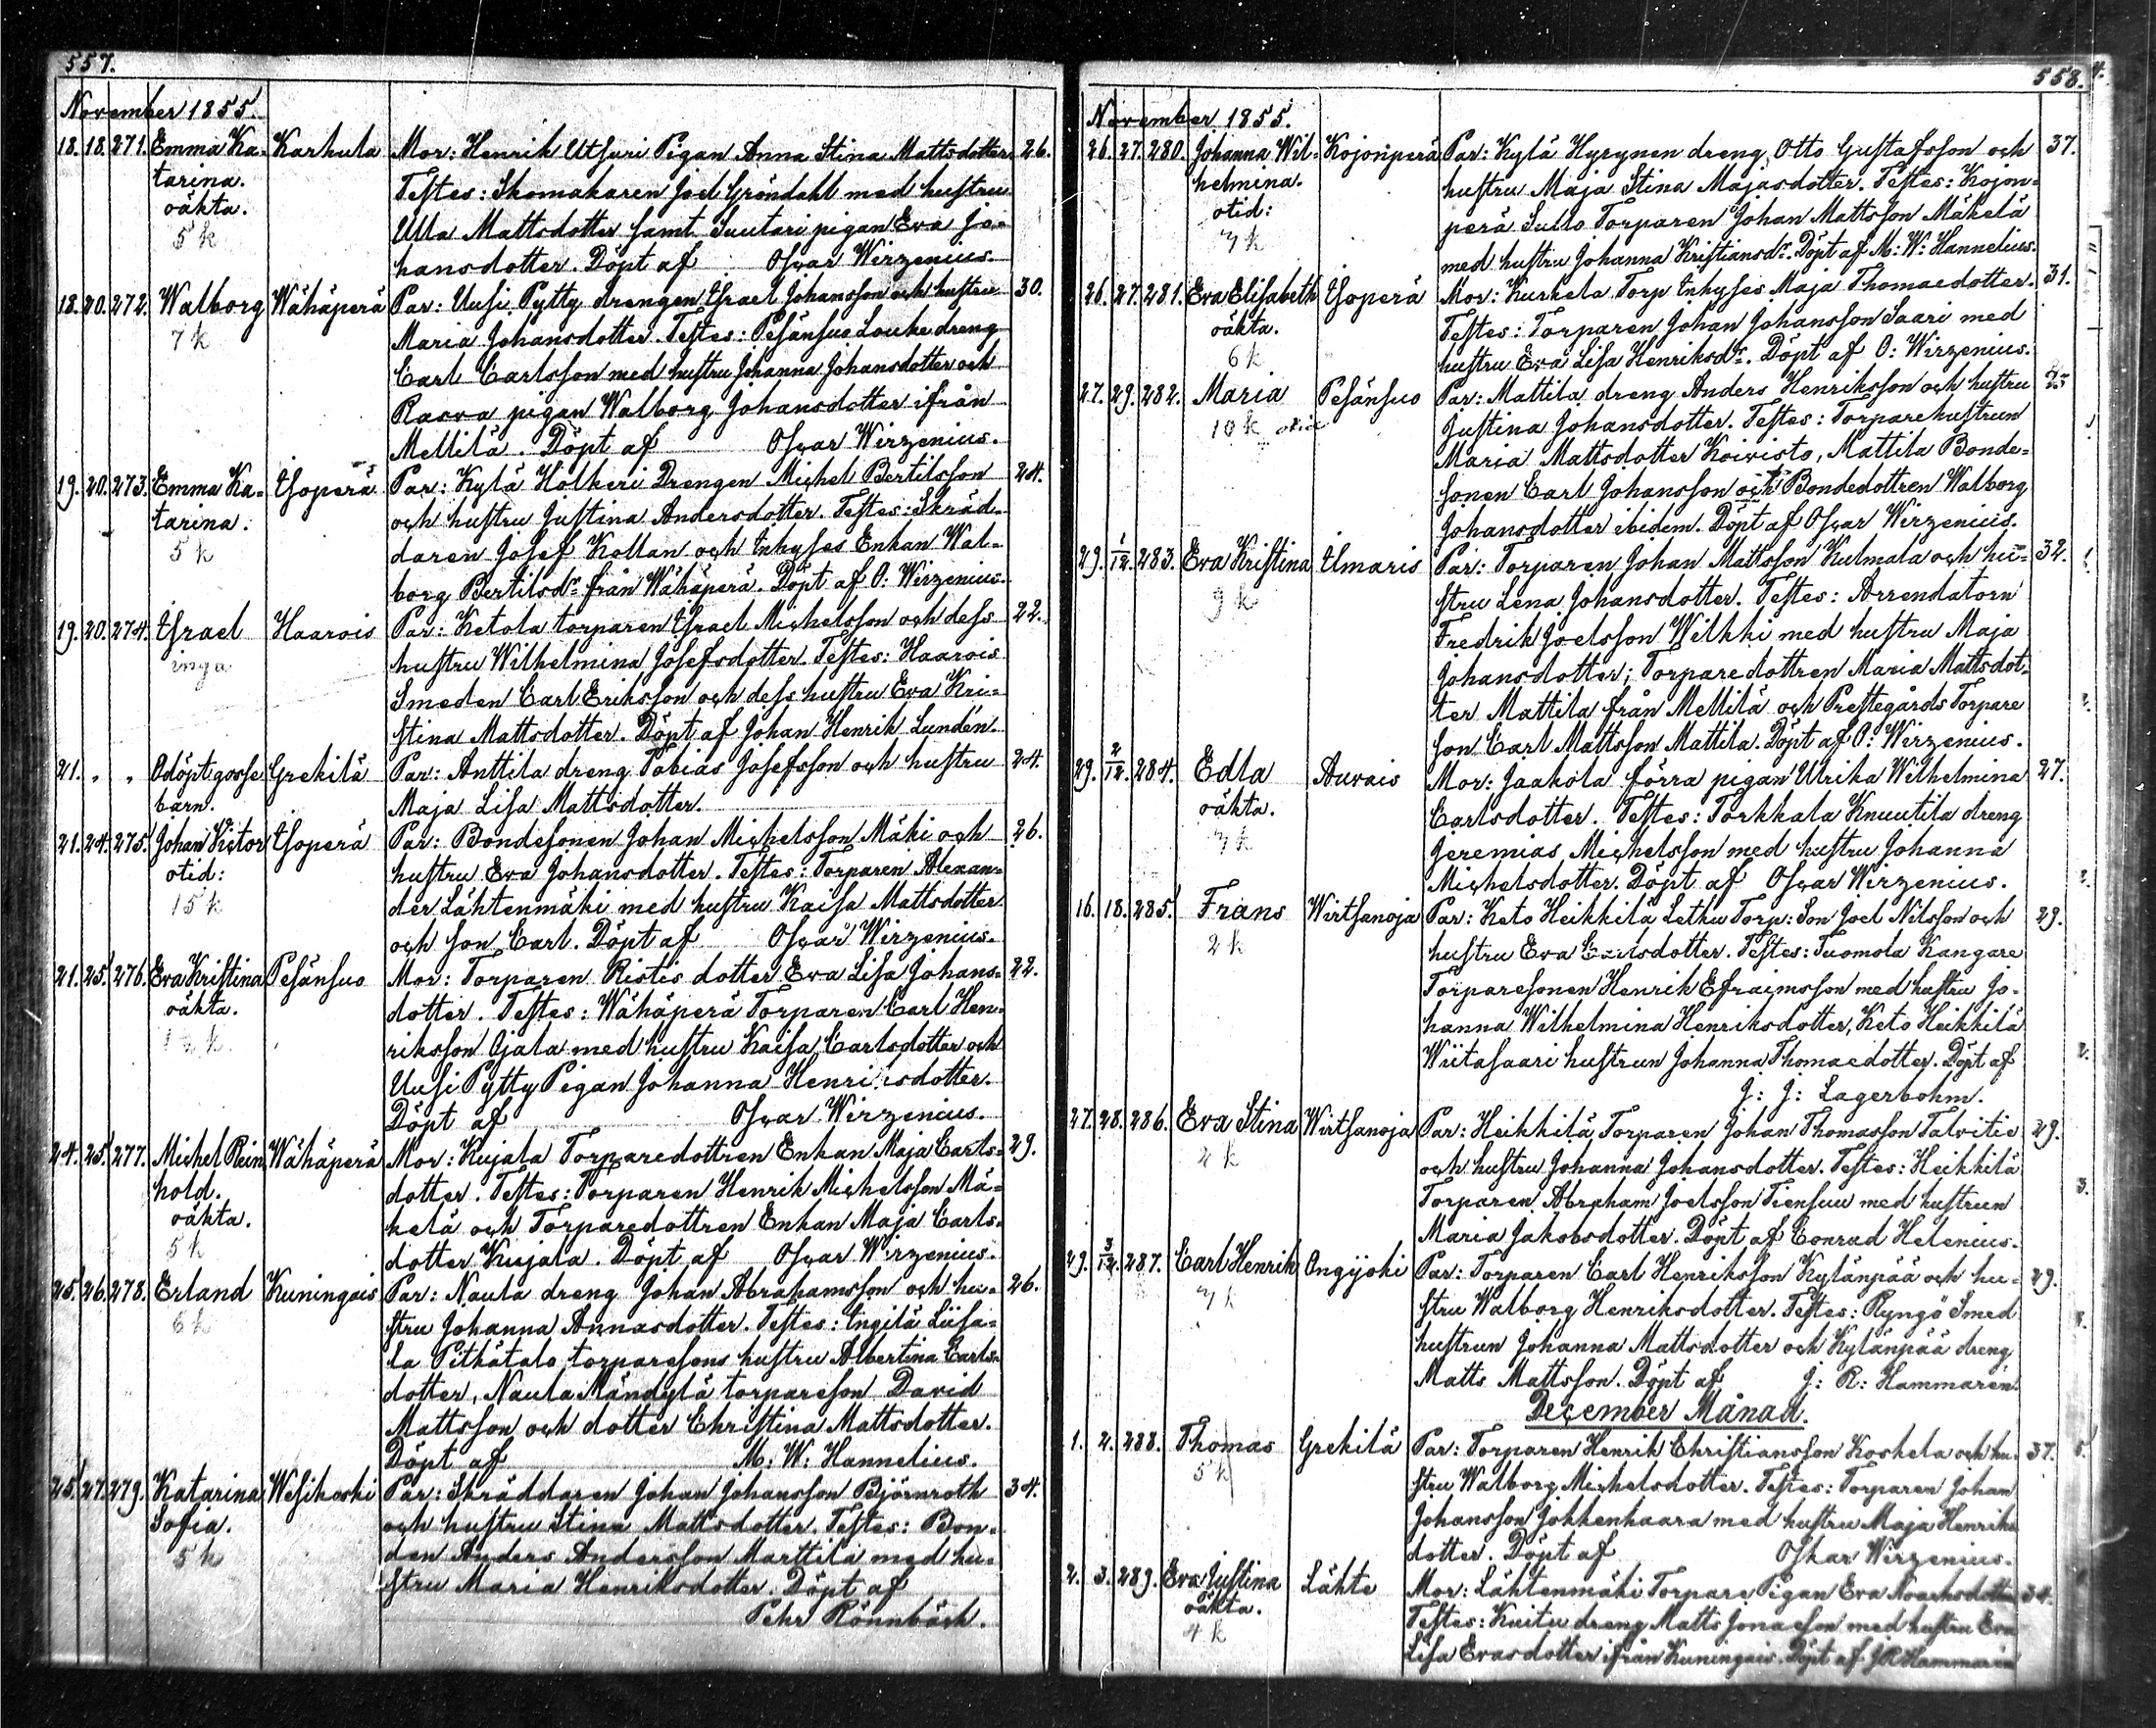 557.
November 1855.
18. 18. 271. Emma Ka- Karhula Mor: Henrik Utsuri Pigan Anna Stina Mattsdotter 26.
tarina. Testes: Skomakaren Joel Gröndahl med hustru
oäkta. Ulla Mattsdotter samt Suutari pigan Eva Jo-
5 k hansdotter. Döpt af Oscar Wirzenius.
18. 20. 272. Walborg Wähäperä Par: Uusi Pytty drengen Israel Johansson och hustru 30.
7 k Maria Johansdotter. Testes: Pesänsuo Louke dreng
Carl Carlsson med hustru Johanna Johansdotter och
Rasva pigan Walborg Johansdotter ifrån
Mellilä. Döpt af Oscar Wirzenius.
19. 20. 273. Emma Ka- Isoperä Par: Kylä Holkeri Drengen Michel Bertilsson 24.
tarina. och hustru Justina Andersdotter. Testes: Skräd-
5 k daren Josef Kollan och Inhyses Enkan Wal-
borg Bertilsdr från Wähäperä. Döpt af O: Wirzenius.
19. 20. 274. Israel Haarois Par: Ketola torparen Israel Michelsson och dess 22.
inga hustru Wilhelmina Josefsdotter. Testes: Haarois
Smeden Carl Eriksson och dess hustru Eva Kri-
stina Mattsdotter. Döpt af Johan Henrik Lundén.
21. " " Odöpt gosse Grekilä Par: Anttila dreng Tobias Josefsson och hustru 24.
barn. Maja Lisa Mattsdotter.
21. 24. 275. Johan Victor Isoperä Par: Bondesonen Johan Michelsson Mäki och 26.
otid: hustru Eva Johansdotter. Testes: Torparen Alexan-
15 k der Lähtenmäki med hustru Kaisa Mattsdotter
och son Carl. Döpt af Oscar Wirzenius.
21. 25. 276. Eva Kristina Pesänsuo Mor: Torparen Ristis dotter Eva Lisa Johans- 22.
oäkta. dotter. Testes: Wähäperä Torparen Carl Hen-
riksson Ojala med hustru Kaisa Carlsdotter och
Uusi Pytty Pigan Johanna Henriksdotter.
Döpt af Oscar Wirzenius.
24. 25. 277. Michel Rein Wähäperä Mor: Kujala Torparedottren Enkan Maja Carls- 29.
hold. dotter. Testes: Torparen Henrik Michelsson Mä-
oäkta. kelä och Torparedottren Enkan Maja Carls-
5 k dotter Kujala. Döpt af Oscar Wirzenius.
25. 26. 278. Erland Kuningais Par: Naula dreng Johan Abrahamsson och hu- 26.
6 k stru Johanna Annasdotter. Testes: Ingilä Liisa-
la Pitkätalo torparesons hustru Albertina Carls-
dotter, Naula Mändylä torpareson David
Mattsson och dotter Christina Mattsdotter.
Döpt af M: W: Hannelius.
25. 27. 279. Katarina Wesikoski Par: Skräddaren Johan Johansson Björnroth 34.
Sofia. och hustru Stina Mattsdotter. Testes: Bon-
5 k den Anders Andersson Marttila med hu-
stru Maria Henriksdotter. Döpt af
Pehr Rönnbäck.
558.
November 1855.
26. 27. 280. Johanna Wil- Kojonperä Par: Kylä Hyrynen dreng Otto Gustafsson och 37.
helmina. hustru Maja Stina Majasdotter. Testes: Kojon-
otid: perä Sullo Torparen Johan Mattsson Mäkelä
7 k med hustru Johanna Kristiansdr. Döpt af M: W: Hannelius.
26. 27. 281. Eva Elisabeth Isoperä Mor: Kurkela Torp Inhyses Maja Thomaedotter. 31.
oäkta. Testes: Torparen Johan Johansson Saari med
6 k hustru Eva Lisa Henriksdr. Döpt af O: Wirzenius.
27. 29. 282. Maria Pesänsuo Par: Mattila dreng Anders Henriksson och hustru
10 k Justina Johansdotter. Testes: Torparehustrun
Maria Mattsdotter Koivisto, Mattila Bonde-
sonen Carl Johansson och Bondedottren Walborg
Johansdotter ibidem. Döpt af Oscar Wirzenius.
29. 1/12. 283. Eva Kristina Ilmaris Par: Torparen Johan Mattsson Kulmala och hu- 32.
9 k stru Lena Johansdotter. Testes: Arrendatorn
Fredrik Joelsson Wilkki med hustru Maja
Johansdotter; Torparedottren Maria Mattsdot-
ter Mattila från Mellilä och Prestegårds Torpare
son Carl Mattsson Mattila. Döpt af O: Wirzenius.
29. 2/12. 284. Edla Auvais Mor: Jaakola förra pigan Ulrika Wilhelmina 27.
oäkta. Carlsdotter. Testes: Torkkala Knuutila dreng
7 k Jeremias Michelsson med hustru Johanna
Michelsdotter. Döpt af Oscar Wirzenius.
16. 18. 285. Frans Wirtsanoja Par: Keto Heikkilä Letku Torp: Son Joel Nilsson och 29.
2 k hustru Eva Carlsdotter. Testes: Tuomola Kangare
Torparesonen Henrik Efraimsson med hustru Jo-
hanna Wilhelmina Henriksdotter, Keto Heikkilä
Wiitasaari hustrun Johanna Thomaedotter. Döpt af
J: J: Lagerbohm.
27. 28. 286. Eva Stina Wirtsanoja Par: Heikkilä Torparen Johan Thomasson Talvitie 29.
2 k och hustru Johanna Johansdotter. Testes: Heikkilä
Torparen Abraham Joelsson Tiensuu med hustrun
Maria Jakobsdotter. Döpt af Conrad Helenius.
29. 3/12. 287. Carl Henrik Ongijoki Par: Torparen Carl Henriksson Kylänpää och hu- 29.
7 k stru Walborg Henriksdotter. Testes: Ryngö Smed
hustrun Johanna Mattsdotter och Kylänpää dreng
Matts Mattsson. Döpt af J: R: Hammarén.
December Månad.
1. 2. 288. Thomas Grekilä Par: Torparen Henrik Christiansson Koskela och hu- 37.
5 k stru Walborg Michelsdotter. Testes: Torparen Johan
Johansson Jokkenhaara med hustru Maja Henriks
dotter. Döpt af Oskar Wirzenius.
2. 3. 289. Eva Justina Lähte Mor: Lähtenmäki Torpare Pigan Eva Noachsdotter 34.
oäkta. Testes: Kuitu dreng Matts Jonaeson med hustru Eva
4 k Lisa Evasdotter ifrån Kuningais. Döpt af J R Hammarén